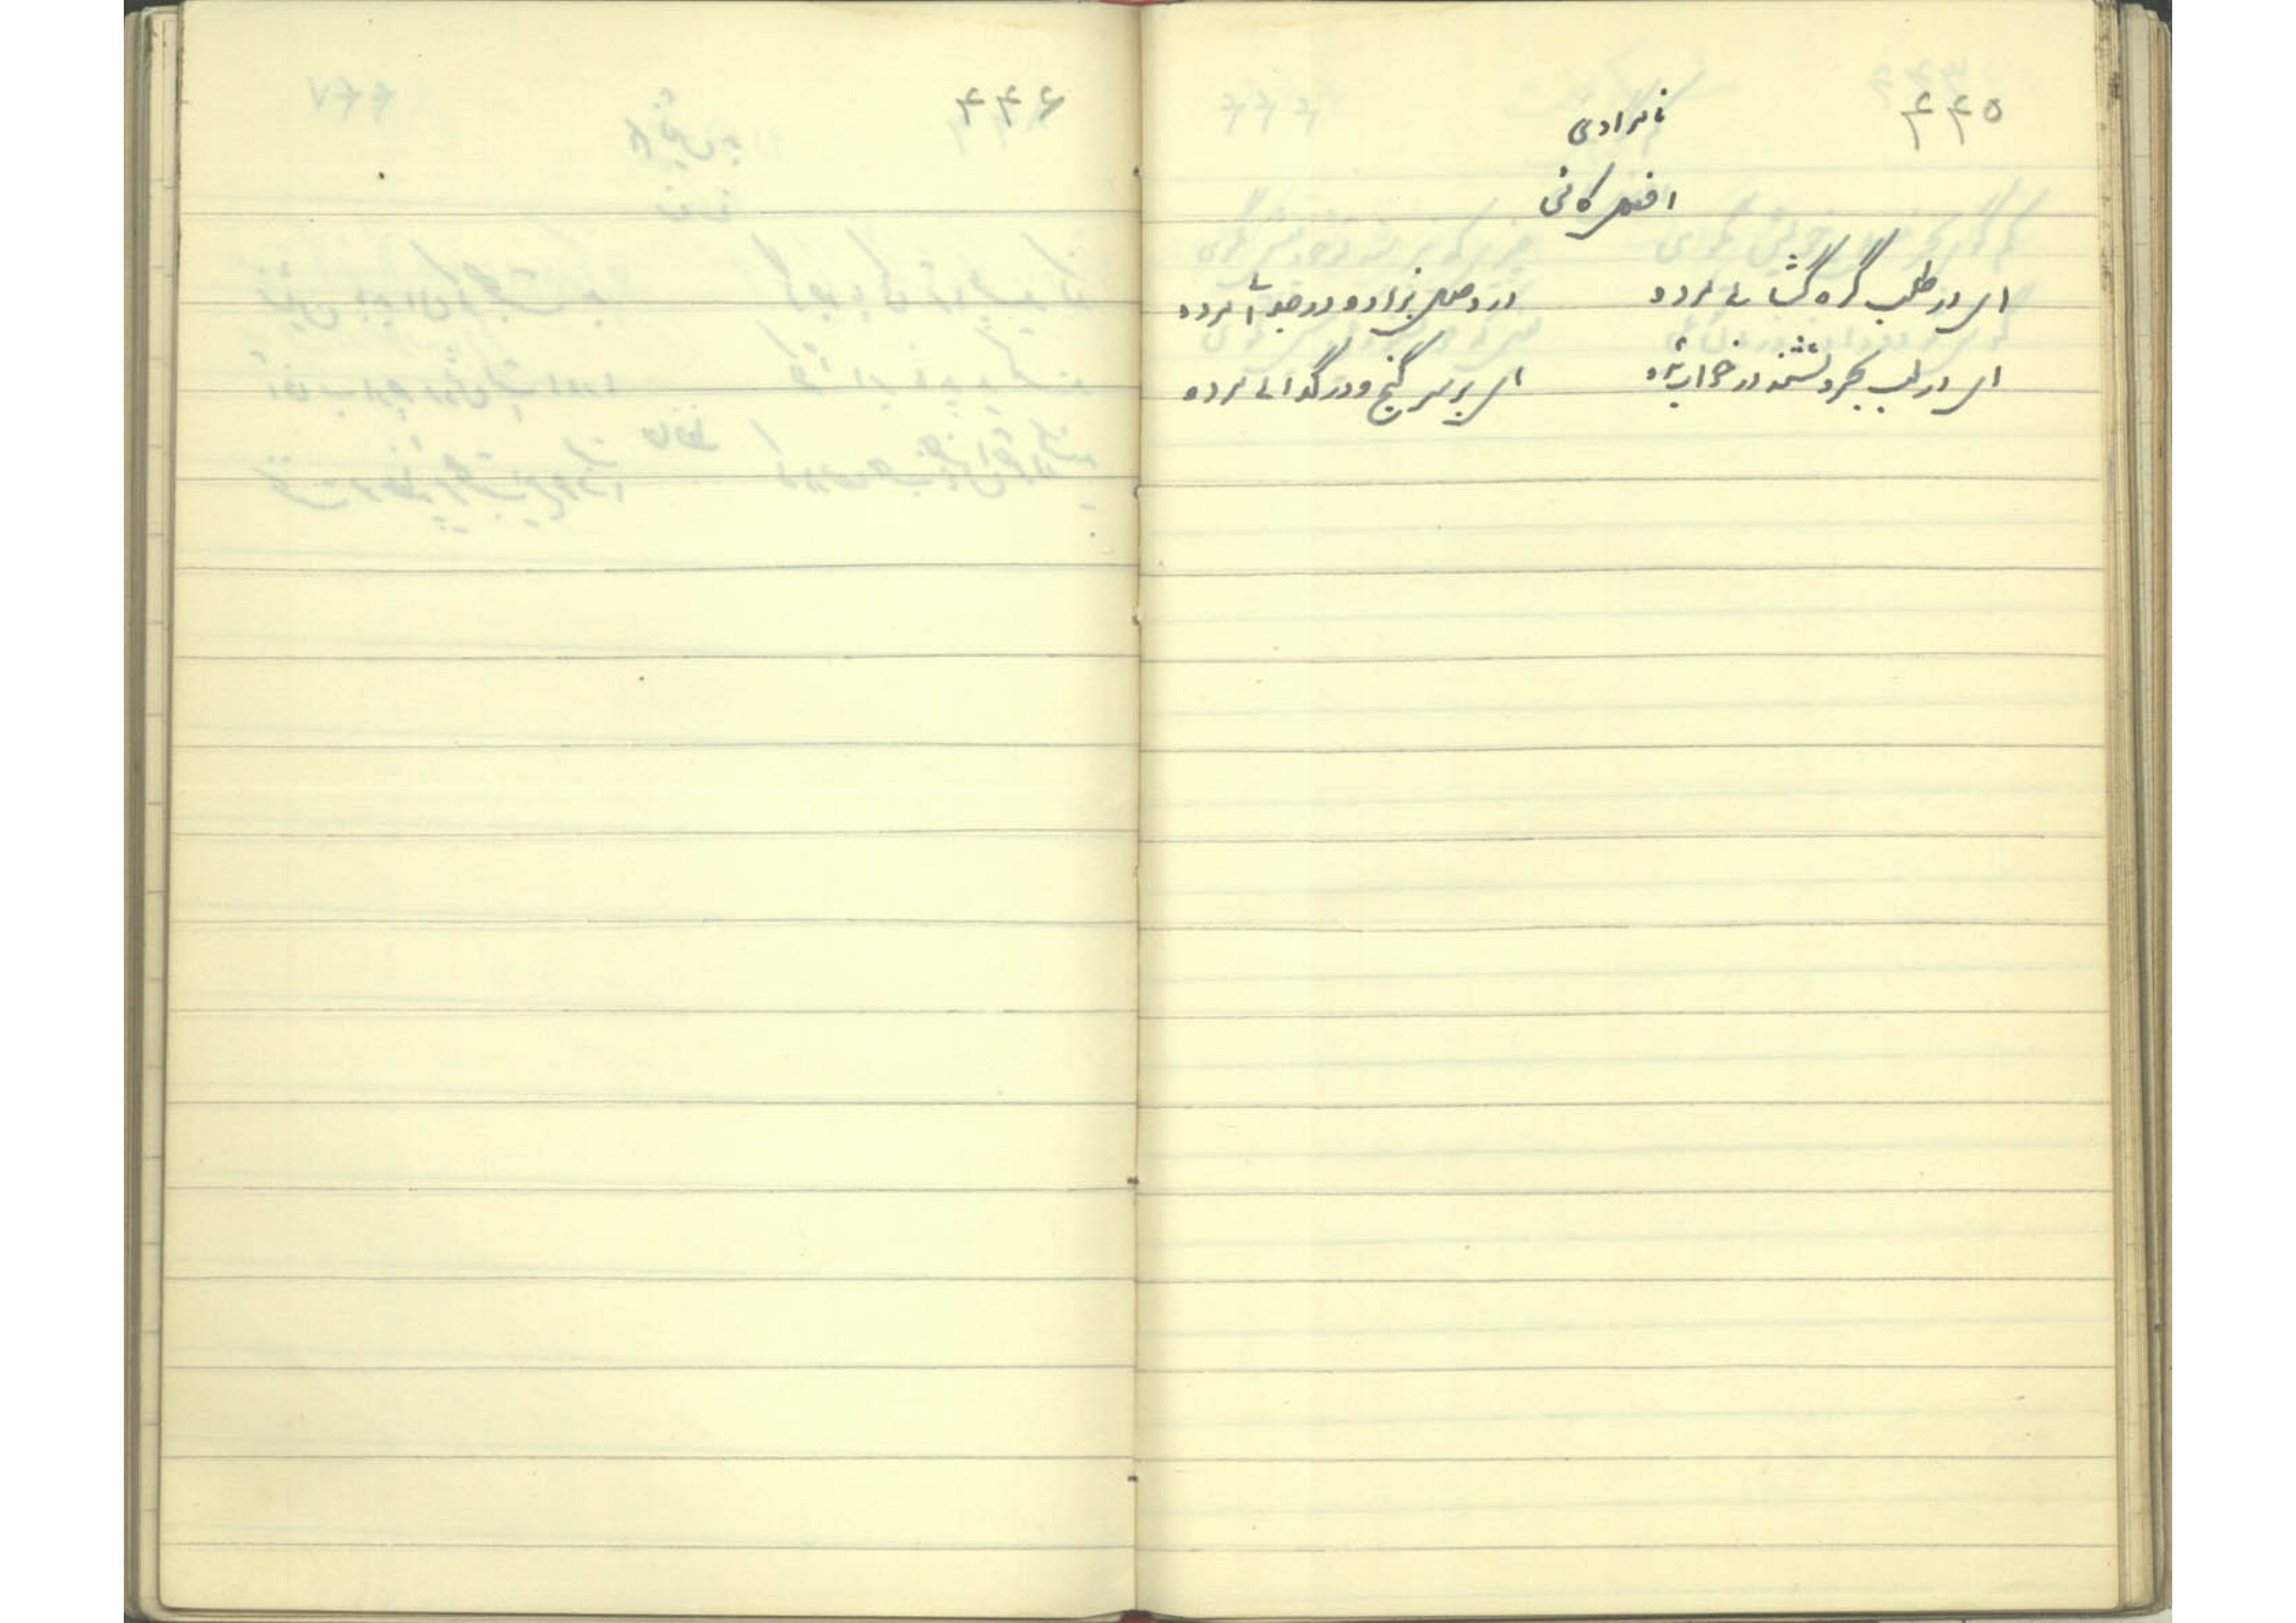 ۴۴۵
نامرادی
افضل کاشی
ای در طلب گره گشائی مرده
در وصل بزاده و در جدائی مرده
ای در لب بحر و تشنه در خواب شده
ای بر سر گنج و در گدائی مرده
۴۴۶